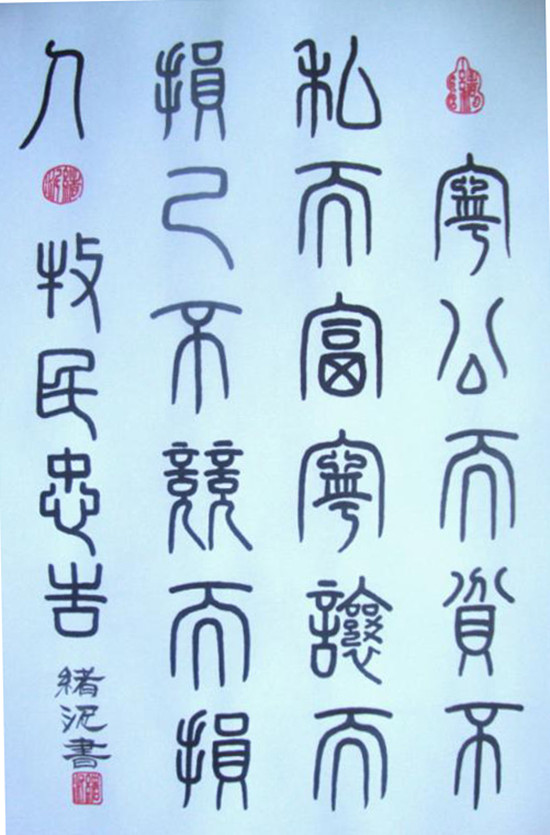 寧公而貧不
私而富寧讓而
損己不競而損
人 牧民忠告 緒泥書